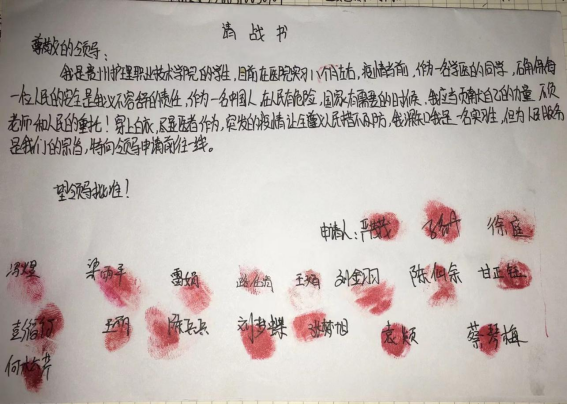 请战书
尊敬的领导：
我是贵州护理职业技术学院的学生，目前在医院实习八个月左右，疫情当前，作为一名学医的同学，
一位人民的生是我义不容辞的责任，作为一名中国人，在人民有危险，国家有需要的时候，我应当贡献自己的力量，不负
老师和人民的重托！穿上白衣，尽显医者作为，突发的疫情让全遵义人民措不及防，我深知我是一名实习生，但为人民服务
是我们的宗旨，特向领导申请前往一线。
望领导批准！
申请人： 徐庭
梁雨平 雷娟 王娟 刘金羽 陈仙余 甘正钰
王丽 陈兵兵 刘梦蝶 张梦旭 袁烦 蔡琴梅
何 芹